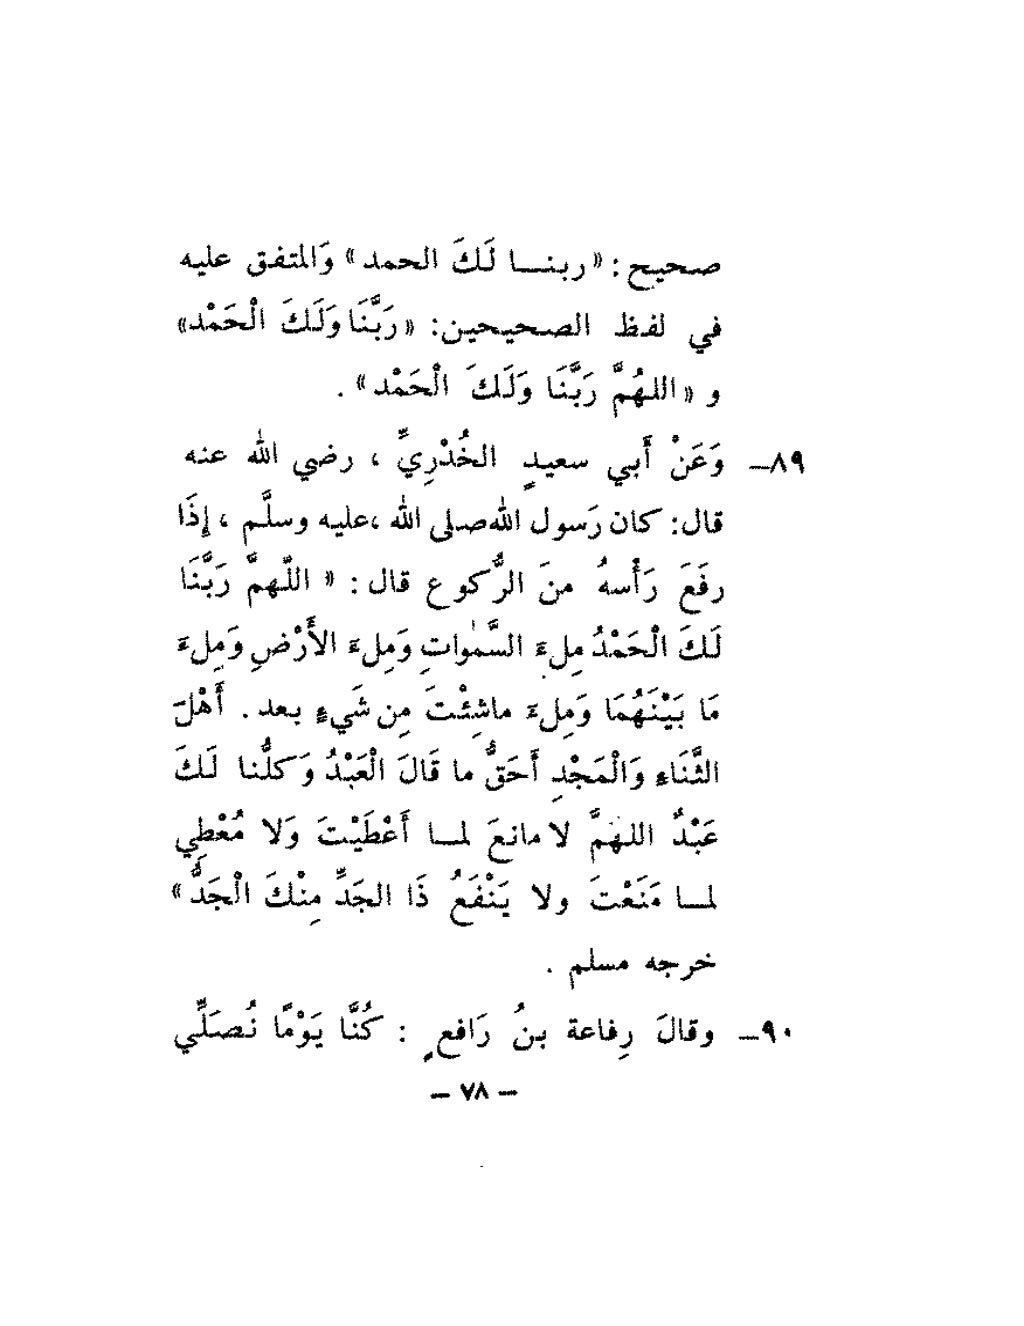 صحيح : « ربنــا لَكَ الحمد » وَالمتفق عليه
في لفظ الصحيحين: « رَبَّنَا وَلَكَ الْحَمْد»
و « اللهُمَّ رَبَّنَا وَلَكَ الْحَمْد» .
٨٩– وَعَنْ أَبي سعيدٍ الخُدْرِيِّ ، رضي الله عنه
قال: كان رَسول الله صلى الله ،عليه وسلَّم ، إِذَا
رفَعَ رَأْسهُ منَ الرُّكوع قال : « اللَّهمَّ رَبَّنَا
لَكَ الْحَمْدُ مِلءَ السَّمٰواتِ وَمِلءَ الأَرْضِ وَمِلءَ
مَا بَيْنَهُمَا وَمِلءَ ماشِئْتَ مِن شَيءٍ بعد . أَهْلَ
الثَّنَاءِ وَالْمَجْدِ أَحَقُّ ما قَالَ الْعَبْدُ وَكلُّنا لَكَ
عَبْدٌ اللهُمَّ لا مانعَ لمــا أَعْطَيْتَ وَلا مُعْطِي
لمــا مَنَعْتَ ولا يَنْفَعُ ذَا الجَدِّ مِنْكَ الْجَدُّ »
خرجه مسلم .
٩٠– وقالَ رِفاعة بنُ رَافعٍ : كُنَّا يَوْمًا نُصَلِّي
– ٧٨ –